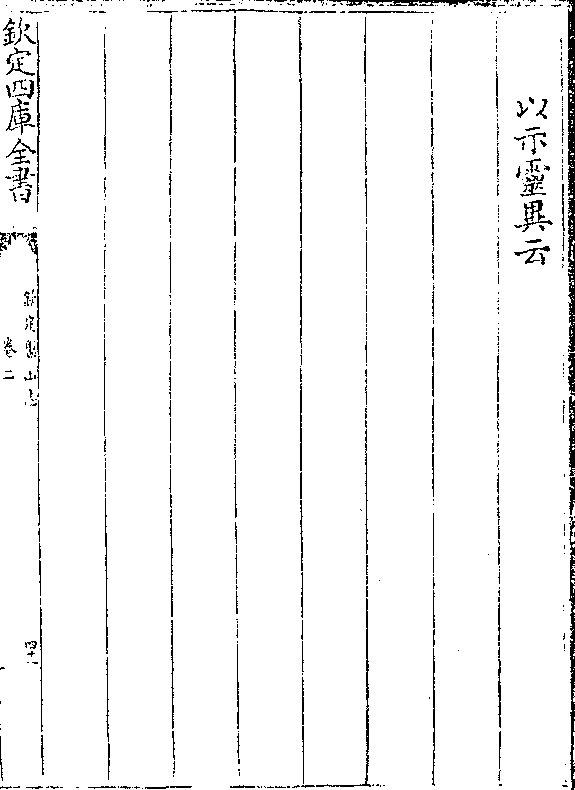 以示靈異云
欽定四庫全書
欽定盤山志
卷二
四十一